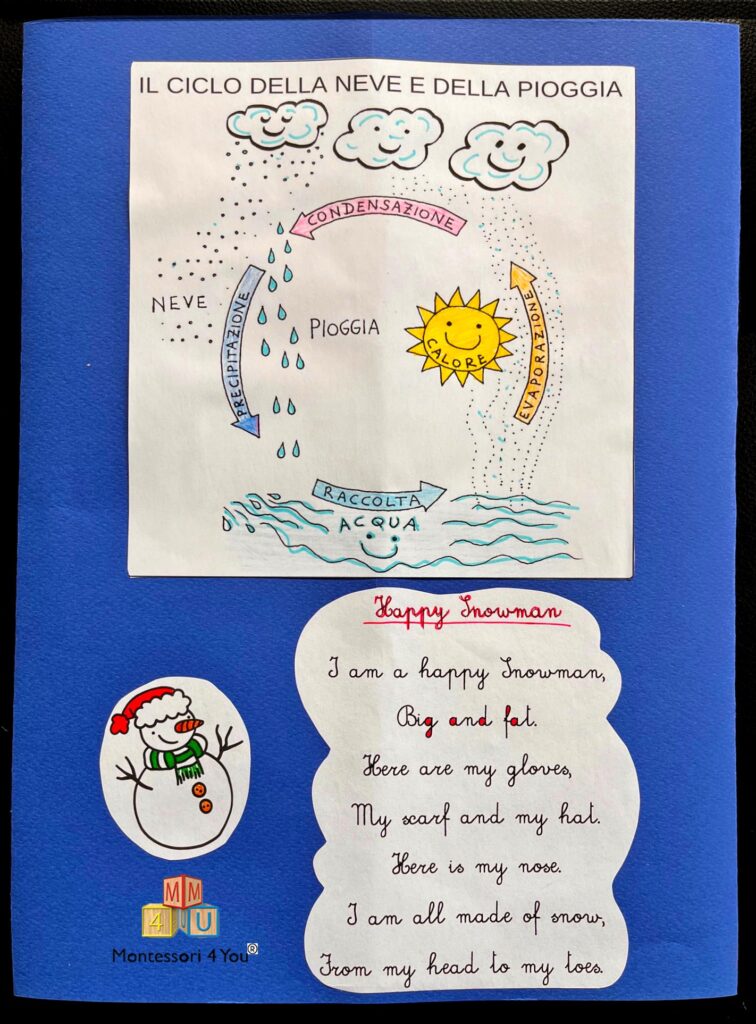 IL CICLO DELLA NEVE E DELLA PIOGGIA
CONDENSAZIONE
NEVE
PRECIPITAZIONE
PIOGGIA
CALORE
EVAPORAZIONE
RACCOLTA
ACQUA
Happy Snowman
I am a happy Snowman,
Big and fat.
Here are my gloves,
My scarf and my hat.
Here is my nose.
I am all made of snow,
From my head to my toes.
MM
4UU
Montessori 4 You®